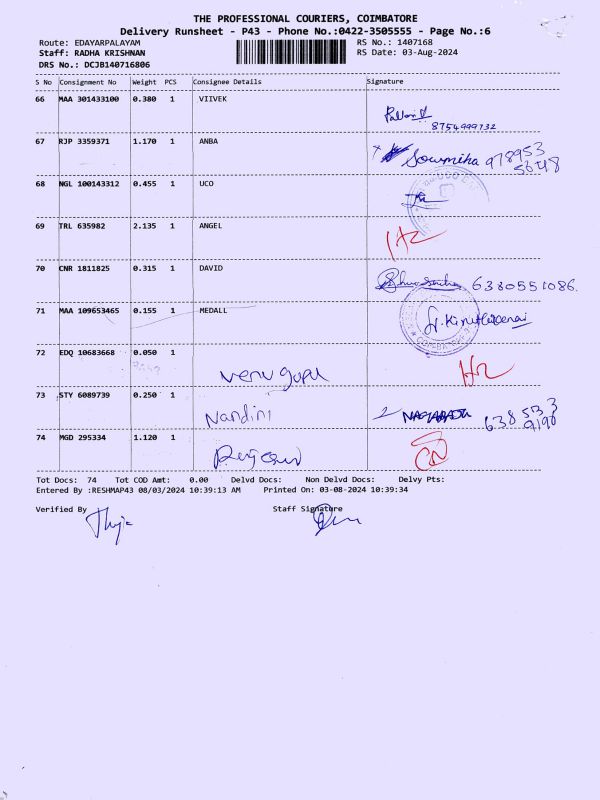 THE PROFESSIONAL COURIERS, COIMBATORE
Delivery Runsheet - P43 - Phone No.:0422-3505555 - Page No.:6
Route: EDAYARPALAYAM
RS No.: 1407168
Staff: RADHA KRISHNAN
RS Date: 03-Aug-2024
DRS No.: DCJB140716806
S No Consignment No Weight PCS Consignee Details Signature
66 MAA 301433100 0.380 1 VIIVEK
8754999732
67 RJP 3359371 1.170 1 ANBA
Sowmiha 978953
5648
68 NGL 100143312 0.455 1 UCO
69 TRL 635982 2.135 1 ANGEL
70 CNR 1811825 0.315 1 DAVID
6380551086.
71 MAA 109653465 0.155 1 MEDALL
72 EDQ 10683668 0.050 1
venu gopal
73 STY 6089739 0.250 1 Nandini
638 533
9190
74 MGD 295334 1.120 1
Tot Docs: 74 Tot COD Amt: 0.00 Delvd Docs: Non Delvd Docs: Delvy Pts:
Entered By :RESHMAP43 08/03/2024 10:39:13 AM Printed On: 03-08-2024 10:39:34
Verified By Staff Signature